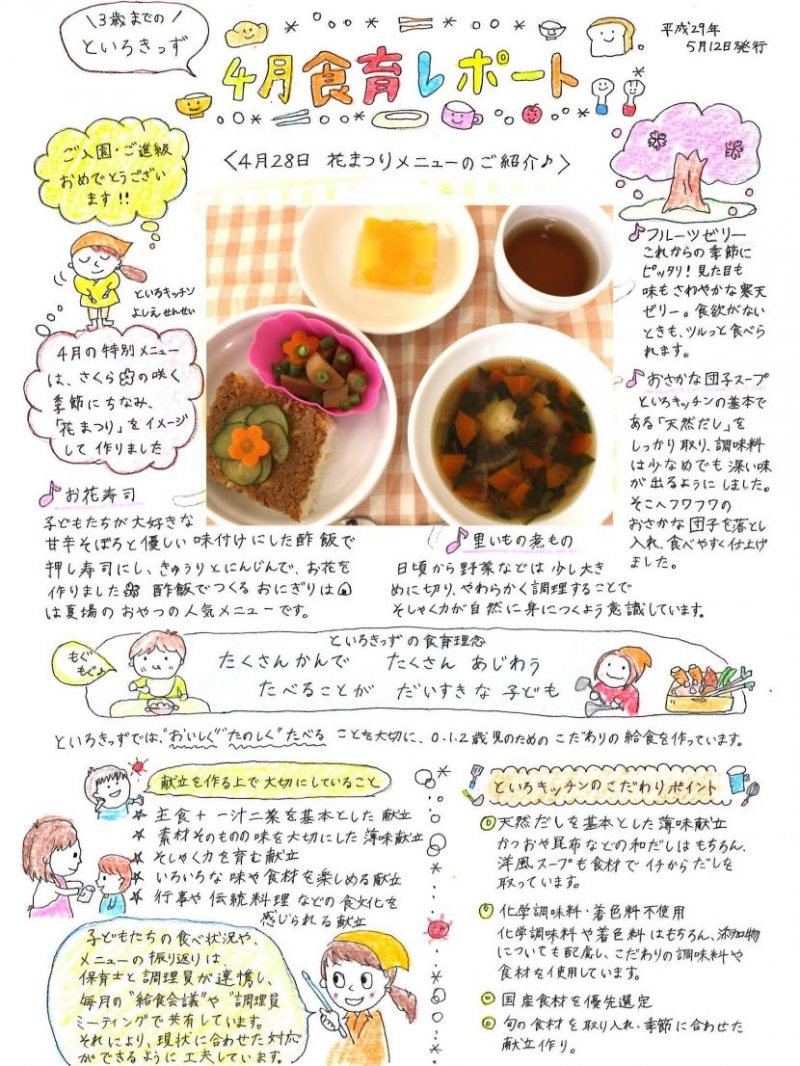 3歳までの
といろきっず
4月食育レポート
平成29年
5月12日発行
ご入園・ご進級
おめでとうござい
ます!!
<4月28日 花まつりメニューのご紹介♪>
といろキッチン
よしえせんせい
4月の特別メニュー
は、さくらの咲く
季節にちなみ、
「花まつり」をイメージ
して作りました
♪フルーツゼリー
これからの季節に
ピッタリ!見た目も
味もさわやかな寒天
ゼリー。食欲がない
ときも、ツルッと食べら
れます。
♪おさかな団子スープ
といろキッチンの基本で
ある「天然だし」を
しっかり取り、調味料
は少なめでも深い味
が出るようにしました。
そこへフワフワの
おさかな団子を落とし
入れ、食べやすく仕上げ
ました。
♪お花寿司
子どもたちが大好きな
甘辛そぼろと優しい味付けにした酢飯で
押し寿司にし、きゅうりとにんじんで、お花を
作りました 酢飯でつくるおにぎりは
は夏場のおやつの人気メニューです。
♪里いもの煮もの
日頃から野菜などは少し大き
めに切り、やわらかく調理することで
そしゃく力が自然に身につくよう意識しています。
もぐもぐ
といろきっずの食育理念
たくさんかんで たくさんあじわう
たべることが だいすきな子ども
といろきっずでは、"おいしく""たのしく"たべることを大切に、0.1.2歳児のためのこだわりの給食を作っています。
献立を作る上で大切にしていること
★ 主食+一汁二菜を基本とした献立
★ 素材そのものの味を大切にした薄味献立
★ そしゃく力を育む献立
★ いろいろな味や食材を楽しめる献立
★ 行事や伝統料理などの食文化を
感じられる献立
子どもたちの食べ状況や、
メニューの振り返りは、
保育士と調理員が連携し、
毎月の"給食会議"や"調理員
ミーティング"で共有しています。
それにより、現状に合わせた対応
ができるように工夫しています。
といろキッチンのこだわりポイント
◎天然だしを基本とした薄味献立
かつおや昆布などの和だしはもちろん、
洋風スープも食材でイチからだしを
取っています。
◎化学調味料・着色料不使用
化学調味料や着色料はもちろん、添加物
についても配慮し、こだわりの調味料や
食材を使用しています。
◎国産食材を優先選定
◎旬の食材を取り入れ、季節に合わせた
献立作り。